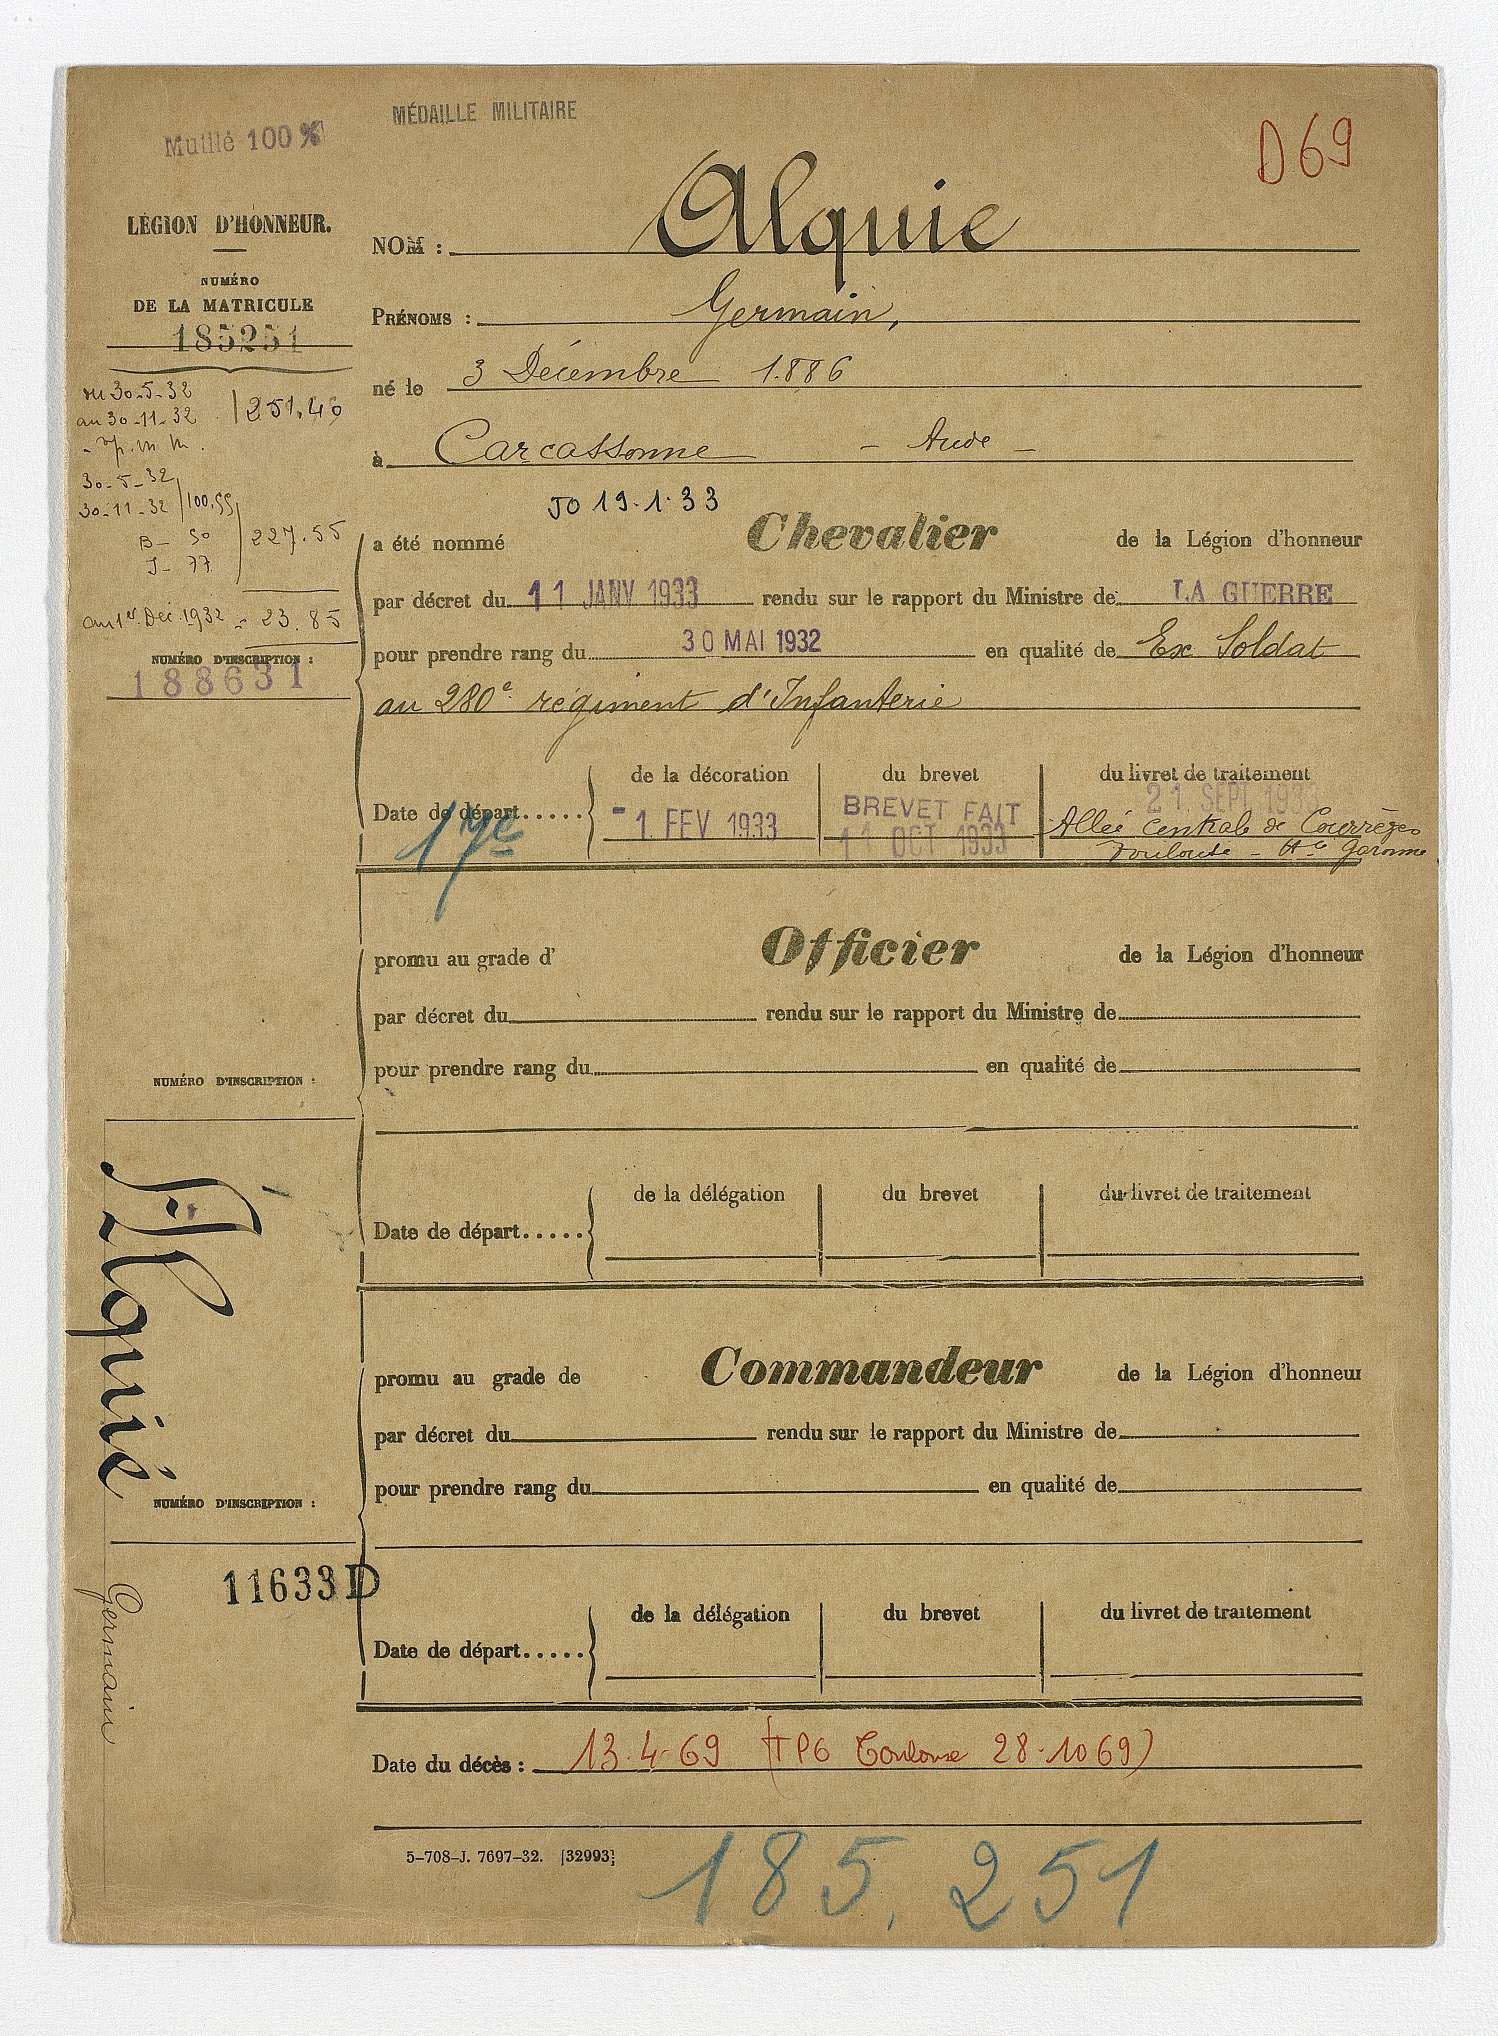 MÉDAILLE MILITAIRE
Mutilé 100 %
D69
LÉGION D'HONNEUR.
NUMÉRO
DE LA MATRICULE
185251
du 30-5-32
au 30-11-32
251,40
30-5-32
30-11-32
100,55
B - 50
J - 77
227.55
au 1er Déc. 1932 = 23.85
NUMÉRO D'INSCRIPTION :
188631
NOM : Alquié
PRÉNOMS : Germain,
né le 3 Décembre 1.886
à Carcassonne - Aude -
JO 19.1.33
a été nommé Chevalier de la Légion d'honneur
par décret du 11 JANV 1933 rendu sur le rapport du Ministre de LA GUERRE
pour prendre rang du 30 MAI 1932 en qualité de Ex Soldat
au 280e régiment d'Infanterie
de la décoration du brevet du livret de traitement
Date de départ..... -1 FEV 1933 BREVET FAIT 11 OCT 1933 21 SEPT 1933
17e
Allée Centrale de Courrèges
Toulouse - Hte Garonne
promu au grade d' Officier de la Légion d'honneur
par décret du rendu sur le rapport du Ministre de
pour prendre rang du en qualité de
NUMÉRO D'INSCRIPTION :
de la délégation du brevet du livret de traitement
Date de départ.....
promu au grade de Commandeur de la Légion d'honneur
par décret du rendu sur le rapport du Ministre de
pour prendre rang du en qualité de
NUMÉRO D'INSCRIPTION :
11633 D
de la délégation du brevet du livret de traitement
Date de départ.....
Alquié
Germain
Date du décès : 13.4.69 (TPG Toulouse 28.10 69)
5-708-J. 7697-32. [32993]
185.251